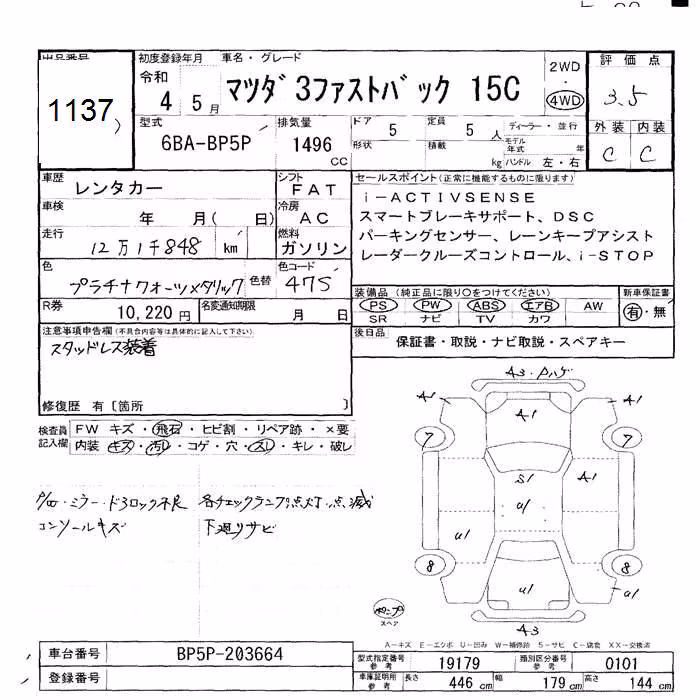 出品番号
1137
初度登録年月
令和
4 5月
車名・グレード
マツダ 3ファストバック 15C
2WD
・
4WD
評価点
3.5
外装 内装
C C
型式
6BA-BP5P
排気量
1496
CC
ドア 5
形状
定員 5 人
積載 kg
ディーラー・並行
モデル年式 年
ハンドル 左・右
車歴
レンタカー
シフト FAT
車検 年 月( 日)
冷房 AC
走行
12万1千848 km
燃料 ガソリン
色
プラチナクォーツメタリック
色替
色コード
47S
R券 10,220円
名変通知期限 月 日
セールスポイント(正常に機能するものに限ります)
i-ACTIVSENSE
スマートブレーキサポート、DSC
パーキングセンサー、レーンキープアシスト
レーダークルーズコントロール、i-STOP
装備品(純正品に限り○をつけてください)
PS PW ABS エアB AW
SR ナビ TV カワ
新車保証書
有・無
後日品
保証書・取説・ナビ取説・スペアキー
注意事項申告欄(不具合内容等は具体的に記入して下さい)
スタッドレス装着
修復歴 有[箇所 ]
検査員記入欄
FW キズ・飛石・ヒビ割・リペア跡・×要
内装 キズ・汚レ・コゲ・穴・スレ・キレ・破レ
ミラー・ドアロック不良
コンソールキズ
各チェックランプ点灯・点滅
下廻りサビ
A3・ハゲ
A1
A1
A1
7
7
S1
A1
U1
U1
8
8
U1
U1
A3
スペア
A-キズ E-エクボ U-凹み W-補修跡 S-サビ C-腐食 XX-交換済
車台番号
BP5P-203664
登録番号
型式指定番号 参考
19179
類別区分番号 参考
0101
車庫証明用 参考
長さ 446 cm
幅 179 cm
高さ 144 cm